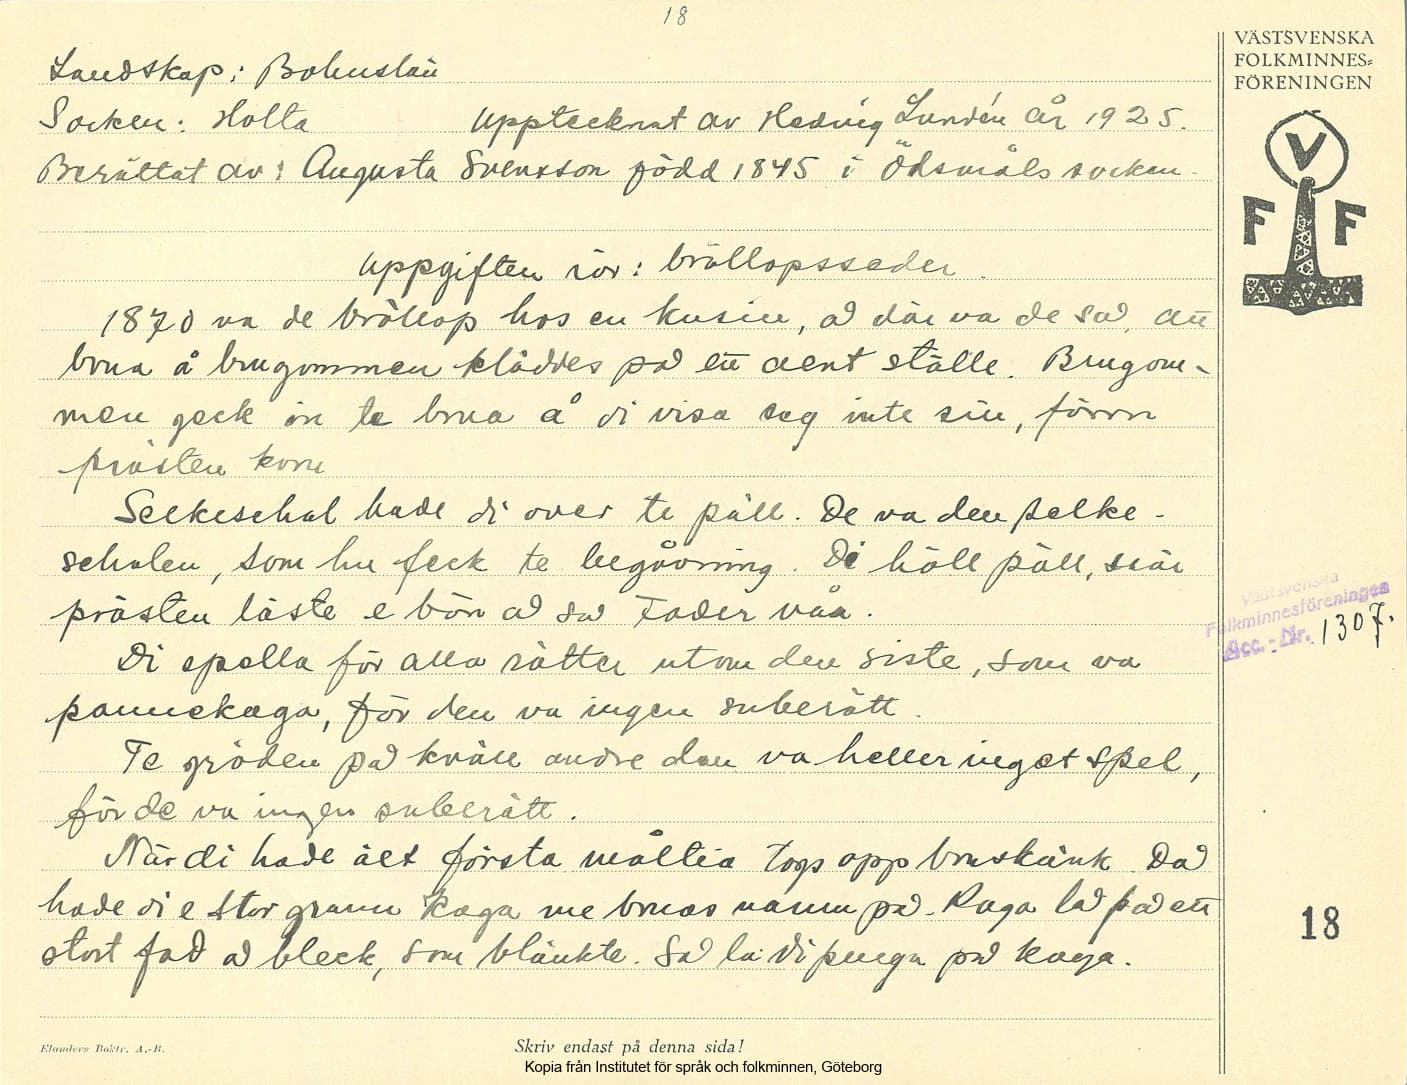 18
Landskap: Bohuslän
Socken: Holta Upptecknat av Hedvig Lundén år 1925.
Berättat av: Augusta Svensson född 1845 i Ödsmåls socken.
Uppgiften rör: bröllopsseder.
1870 va de bröllop hos en kusin, å där va de så, att
brua å brugommen kläddes på ett aent ställe. Brugom-
men geck in te brua å di visa seg inte sin, förrn
prästen kom
Selkeschal hade di over te päll. De va den selke-
schalen, som hu feck te begåvning. Di höll päll, när
prästen läste e bön å sa Fader våa.
Di spella för alla rätter utom den siste, som va
pannekaga, för den va ingen suberätt.
Te gröden på kväll andre dan va heller inget spel,
för de va ingen suberätt.
När di hade ätt första måltia togs opp bruskänk. Då
hade di e stor grann kaga me bruas namn på. Kaga lå på ett
stort fad å bleck, som blänkte. Så la di penga på kaga.
VÄSTSVENSKA
FOLKMINNES=
FÖRENINGEN
V
F F
Västsvenska
Folkminnesföreningen
Acc.-Nr. 1307.
18
Elanders Boktr. A.-B.
Skriv endast på denna sida!
Kopia från Institutet för språk och folkminnen, Göteborg